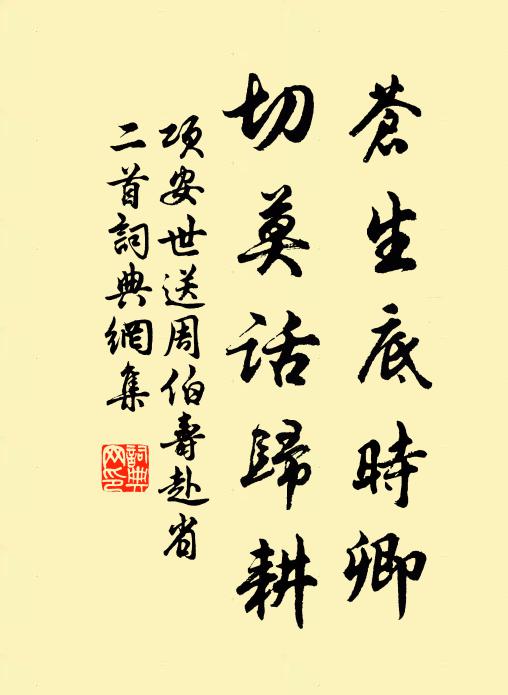 蒼生底時卿
切莫話歸耕
項安世送周伯壽赴省
二首詞典網集
詞典
网印